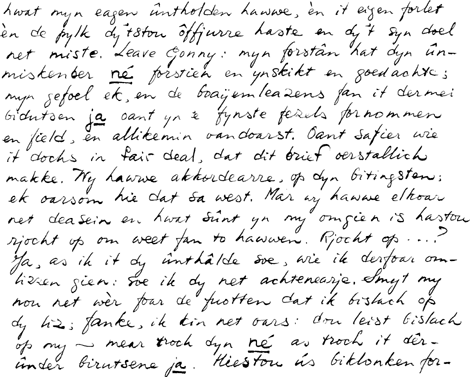 hwat myn eagen ûntholden hawwe, én it eigen forlet
én de pylk dy'tstou ôfjurre haste en dy't syn doel
net miste. Leave Conny: myn forstân hat dyn ûn-
miskenber né forstien en ynskikt en goedachte;
myn gefoel ek, en de boaijemleazens fan it dermei
bidutsen ja oant yn 'e fynste fezels fornommen
en field, en allikemin oandoarst. Oant safier wie
it dochs in fair deal, dat dit brief oerstallich
makke. Wy hawwe akkordearre, op dyn bitingsten;
ek oarsom hie dat sa west. Mar wy hawwe elkoar
net deasein en hwat sûnt yn my omgien is hastou
rjocht op om weet fan to hawwen. Rjocht op ....?
Ja, as ik it dy ûnthâlde soe, wie ik derfoar om-
lizzen gien: soe ik dy net achtenearje. Smyt my
nou net wèr foar de fuotten dat ik bislach op
dy liz; fanke, ik kin net oars: dou leist bislach
op my — mear troch dyn né as troch it dêr-
ûnder birutsene ja. Hiestou ús biklonken for-